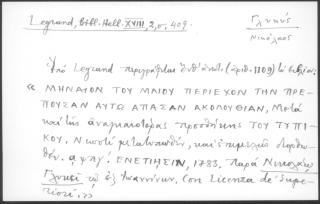 Legrand, Bibl. Hell. XVIII, 2, σ. 409.
Γλυκύς
Νικόλαος
Ὑπὸ Legrand περιγράφεται (ἀριθ. 1109) τὸ βιβλίον:
« ΜΗΝΑΙΟΝ ΤΟΥ ΜΑΙΟΥ ΠΕΡΙΕΧΟΝ ΤΗΝ ΠΡΕ-
ΠΟΥΣΑΝ ΑΥΤΩ ΑΠΑΣΑΝ ΑΚΟΛΟΥΘΙΑΝ, Μετὰ
καὶ τῆς ἀναγκαιοτάτης προσθήκης ΤΟΥ ΤΥΠΙ-
ΚΟΥ. Νεωστὶ μετατυπωθὲν, καὶ ἐπιμελῶς διορθω-
θέν. αψπγ΄. ΕΝΕΤΙΗΣΙΝ, 1783. Παρὰ Νικολάῳ
Γλυκεῖ τῷ ἐξ Ἰωαννίνων. Con Licenza de' Supe-
riori. »